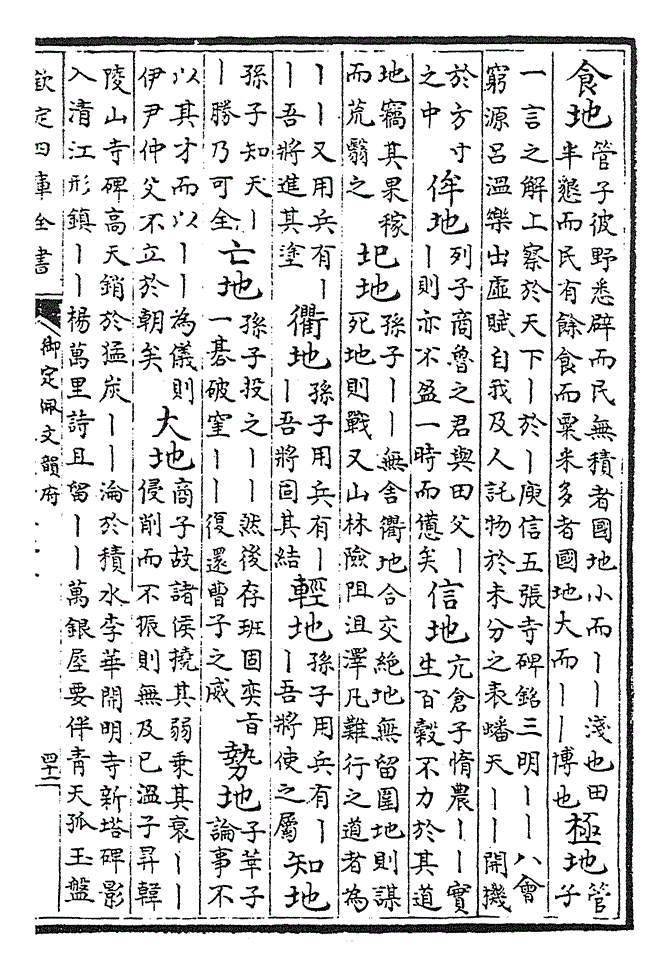 食地管子彼野悉辟而民無積者國地小而丨丨淺也田半墾而民有餘食而粟米多者國地大而丨丨博也極地管子
一言之解上察於天下丨於丨庾信五張寺碑銘三明丨丨八會窮源呂溫樂出虛賦自我及人託物於未分之表蟠天丨丨開機
於方寸之中侔地列子商魯之君與田父丨丨則亦不盈一時而憊矣信地亢倉子惰農丨丨實生百穀不力於其道
地竊其果稼而荒翳之圯地孫子丨丨無舍衢地合交絶地無留圍地則謀死地則戰又山林險阻沮澤凡難行之道者為
丨丨又用兵有丨丨吾將進其塗衢地孫子用兵有丨丨吾將固其結輕地孫子用兵有丨丨吾將使之屬知地
孫子知天丨丨勝乃可全亡地孫子投之丨丨然後存班固奕旨一棊破窒丨丨復還曹子之威勢地子華子論事不
以其才而以丨丨為儀則伊尹仲父不立於朝矣大地商子故諸侯撓其弱乗其衰丨丨侵削而不振則無及已溫子昇韓
陵山寺碑高天銷於猛炭丨丨淪於積水李華開明寺新塔碑影入清江形鎮丨丨楊萬里詩且留丨丨萬銀屋要伴青天孤玉盤
欽定四庫全書
御定佩文韻府
四十二